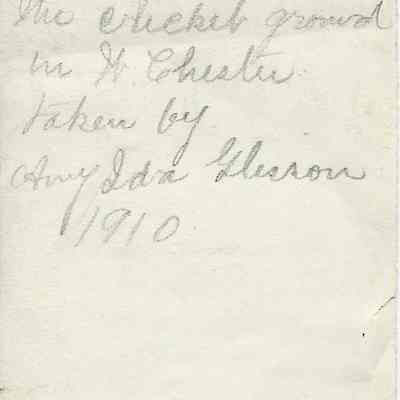 The cricket ground
in W. Chester
taken by
Amy Ida Glisson
1910